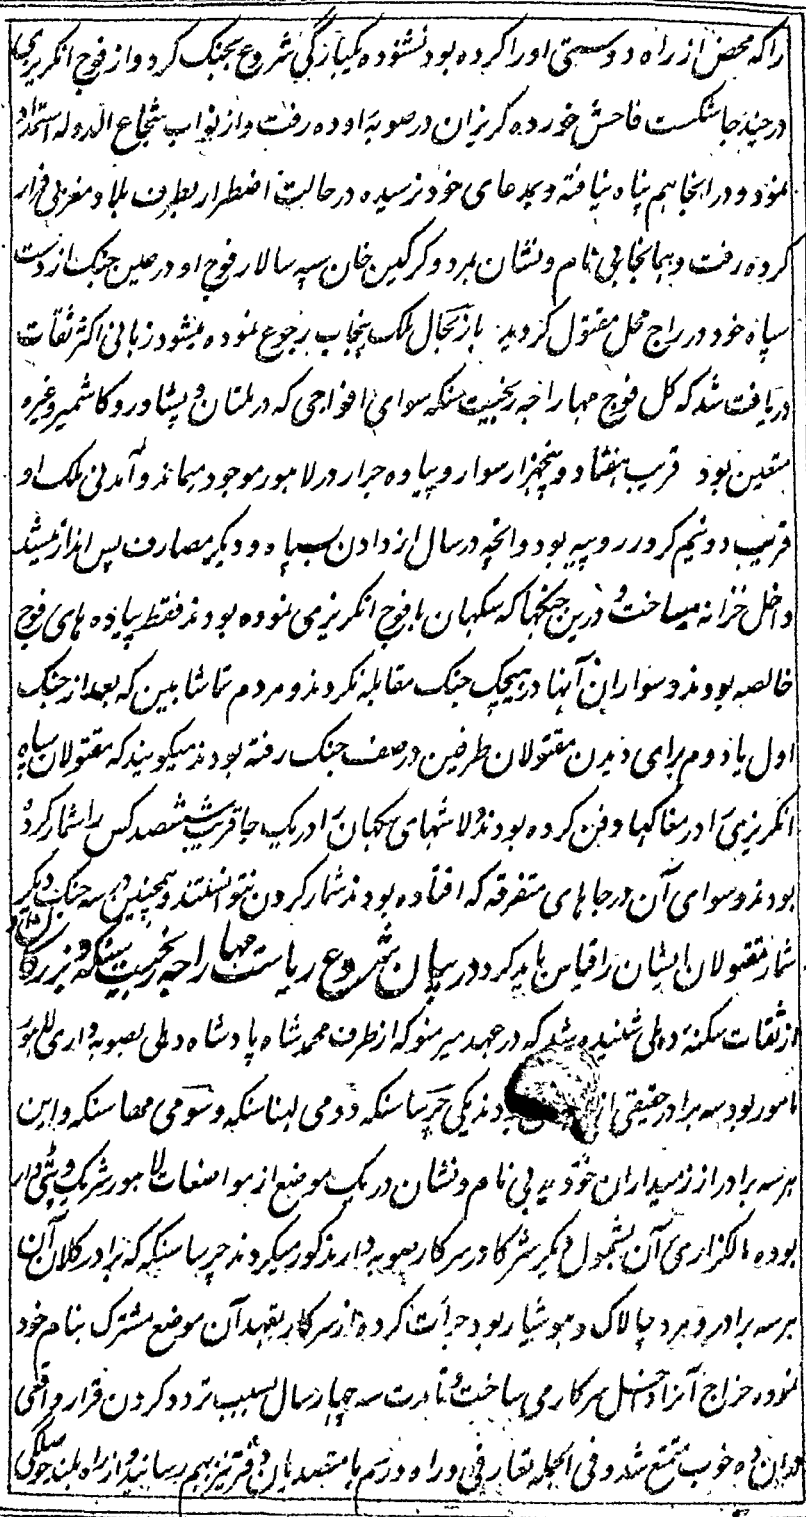 را که محض از راه دوستی او را کرده بود نشنوده یکبارگی شروع بجنک کرد و از فوج انکریزی
در چند جا شکست فاحش خورده کریزان در صوبه اوده رفت و از نواب شجاع الدوله استمداد
نمود و در انجا هم پناه نیافته و بمدعای خود نرسیده در حالت اضطرار بطرف بلاد مغربی فرار
کرده رفت و همانجا بی نام و نشان بمرد و کرکین خان سپه سالار فوج او در عین جنک از دست
سپاه خود در راج محل مقتول کردید باز بحال ملک پنجاب رجوع نموده میشود زبانی اکثر ثقات
دریافت شد که کل فوج مهاراجه رنجیت سنکه سوای افواجی که در ملتان و پشاور و کاشمیر وغیره
متعین بود قریب هفتاد و پنجهزار سوار و پیاده جرار در لاهور موجود میماند و آمدنی ملک او
قریب دو نیم کرور روپیه بود و انچه در سال از دادن سپاه و دیکر مصارف پس انداز میشد
داخل خزانه میساخت و درین جنکها که سکهان با فوج انکریزی نموده بودند فقط پیاده های فوج
خالصه بودند و سواران آنها در هیچیک جنک مقابله نکردند و مردم تماشا بین که بعد از جنک
اول یا دوم برای دیدن مقتولان طرفین در صف جنک رفته بودند میکویند که مقتولان سپاه
انکریزی را در مغاکها دفن کرده بودند و لاشهای سکهان را در یک جا قریب ششصد کس را شمار کرده
بودند و سوای آن در جاهای متفرقه که افتاده بودند شمار کردن نتوانستند و همچنین در سه جنک دیکر
شمار مقتولان ایشان را قیاس باید کرد در بیان شروع ریاست مهاراجه رنجیت سینکه و بزرکان
از ثقات سکنه دهلی شنیده شد که در عهد میر منو که از طرف محمد شاه پادشاه دهلی بصوبه داری لاهور
مامور بود سه برادر حقیقی از بودند یکی چرسا سنکه دومی لهنا سنکه و سومی مهاسنکه و این
هر سه برادر از زمیداران خورد به بی نام و نشان در یک موضع از مواضعات لاهور شریک و پتی دار
بوده مالکزاری آن بشمول دیکر شرکا در سرکار صوبه دار مذکور میکردند چرسا سنکه که برادر کلان آن
هر سه برادر و مرد چالاک و هوشیار بود جرأت کرده از سرکار بتعهد آن موضع مشترک بنام خود
نموده خراج آنرا داخل سرکار می ساخت و تا مدت سه چهار سال بسبب تردد کردن قرار واقعی
دران ده خوب متمتع شد و فی الجمله تعارفی و راه و رسم با متصدیان دفتر نیز بهم رسانید و از راه بلند حوصلکی